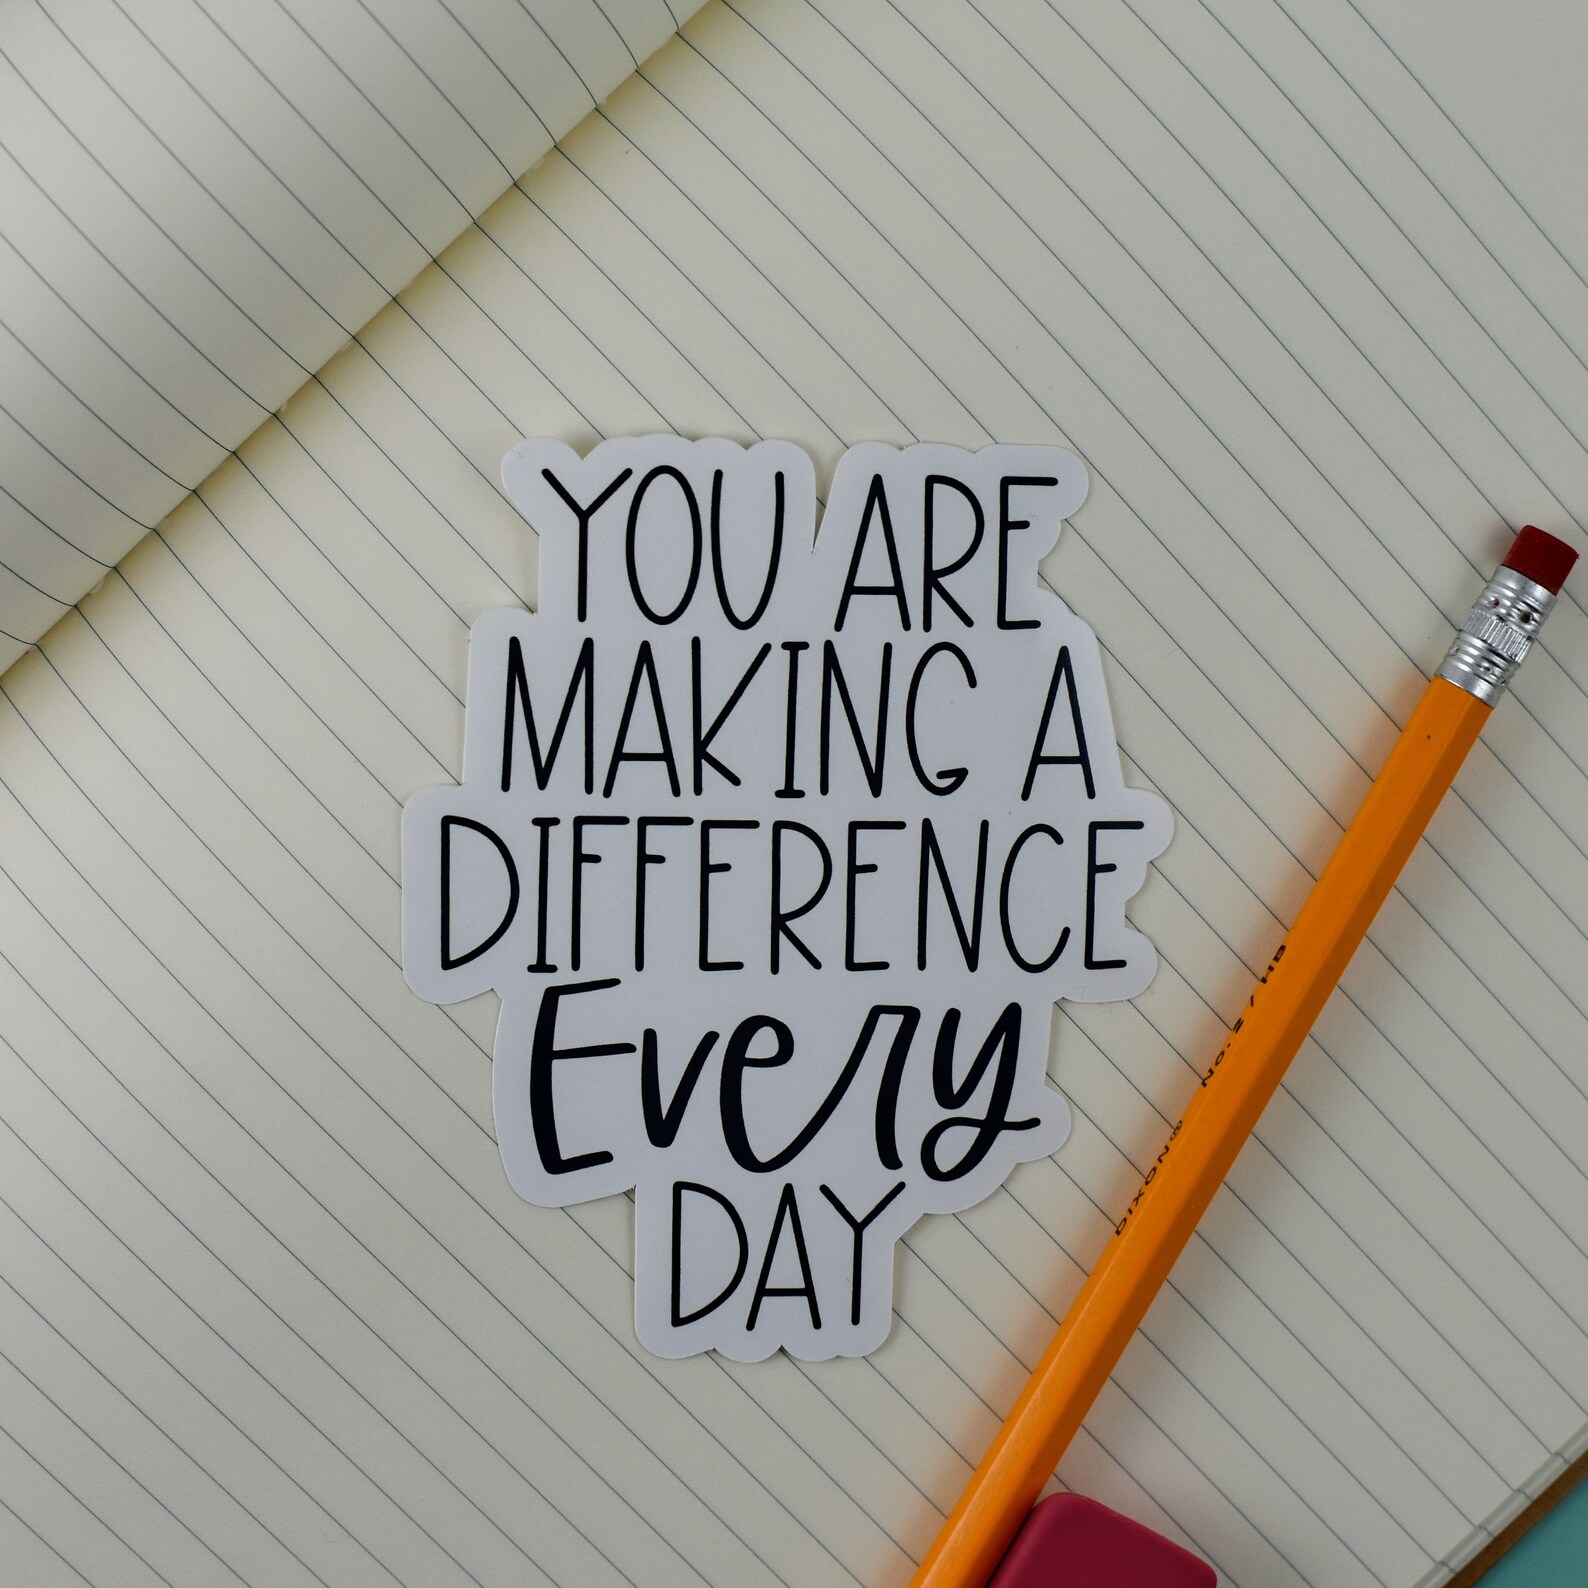 YOU ARE
MAKING A
DIFFERENCE
Every
DAY
DIXON® No. 2 / HB